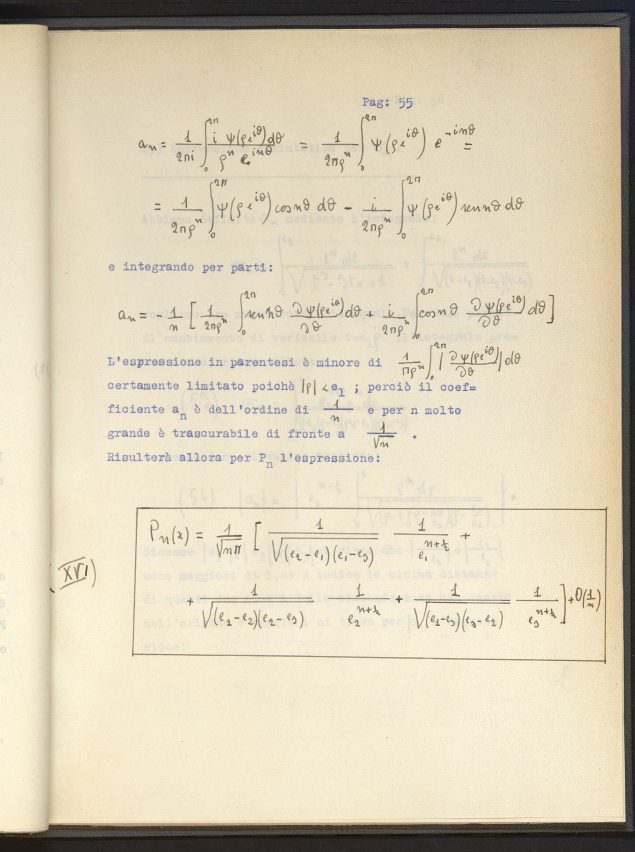 Pag: 55
aₙ = 1/(2πi) ∫₀^{2π} i ψ(ρe^{iθ})dθ / (ρⁿ e^{inθ}) = 1/(2πρⁿ) ∫₀^{2π} ψ(ρe^{iθ}) e^{-inθ} =
= 1/(2πρⁿ) ∫₀^{2π} ψ(ρe^{iθ}) cos nθ dθ - i/(2πρⁿ) ∫₀^{2π} ψ(ρe^{iθ}) sen nθ dθ
e integrando per parti:
aₙ = - 1/n [ 1/(2πρⁿ) ∫₀^{2π} sen nθ ∂ψ(ρe^{iθ})/∂θ dθ + i/(2πρⁿ) ∫₀^{2π} cos nθ ∂ψ(ρe^{iθ})/∂θ dθ ]
L'espressione in parentesi è minore di 1/(πρⁿ) ∫₀^{2π} | ∂ψ(ρe^{iθ})/∂θ | dθ
certamente limitato poichè |ρ| < e₁ ; perciò il coef=
ficiente aₙ è dell'ordine di 1/n e per n molto
grande è trascurabile di fronte a 1/√n .
Risulterà allora per Pₙ l'espressione:
Pₙ(x) = 1/√(nπ) [ 1/√((e₂-e₁)(e₁-e₃)) 1/e₁^{n+½} +
(XVI)
+ 1/√((e₁-e₂)(e₂-e₃)) 1/e₂^{n+½} + 1/√((e₁-e₃)(e₃-e₂)) 1/e₃^{n+½} ] + O(1/n)